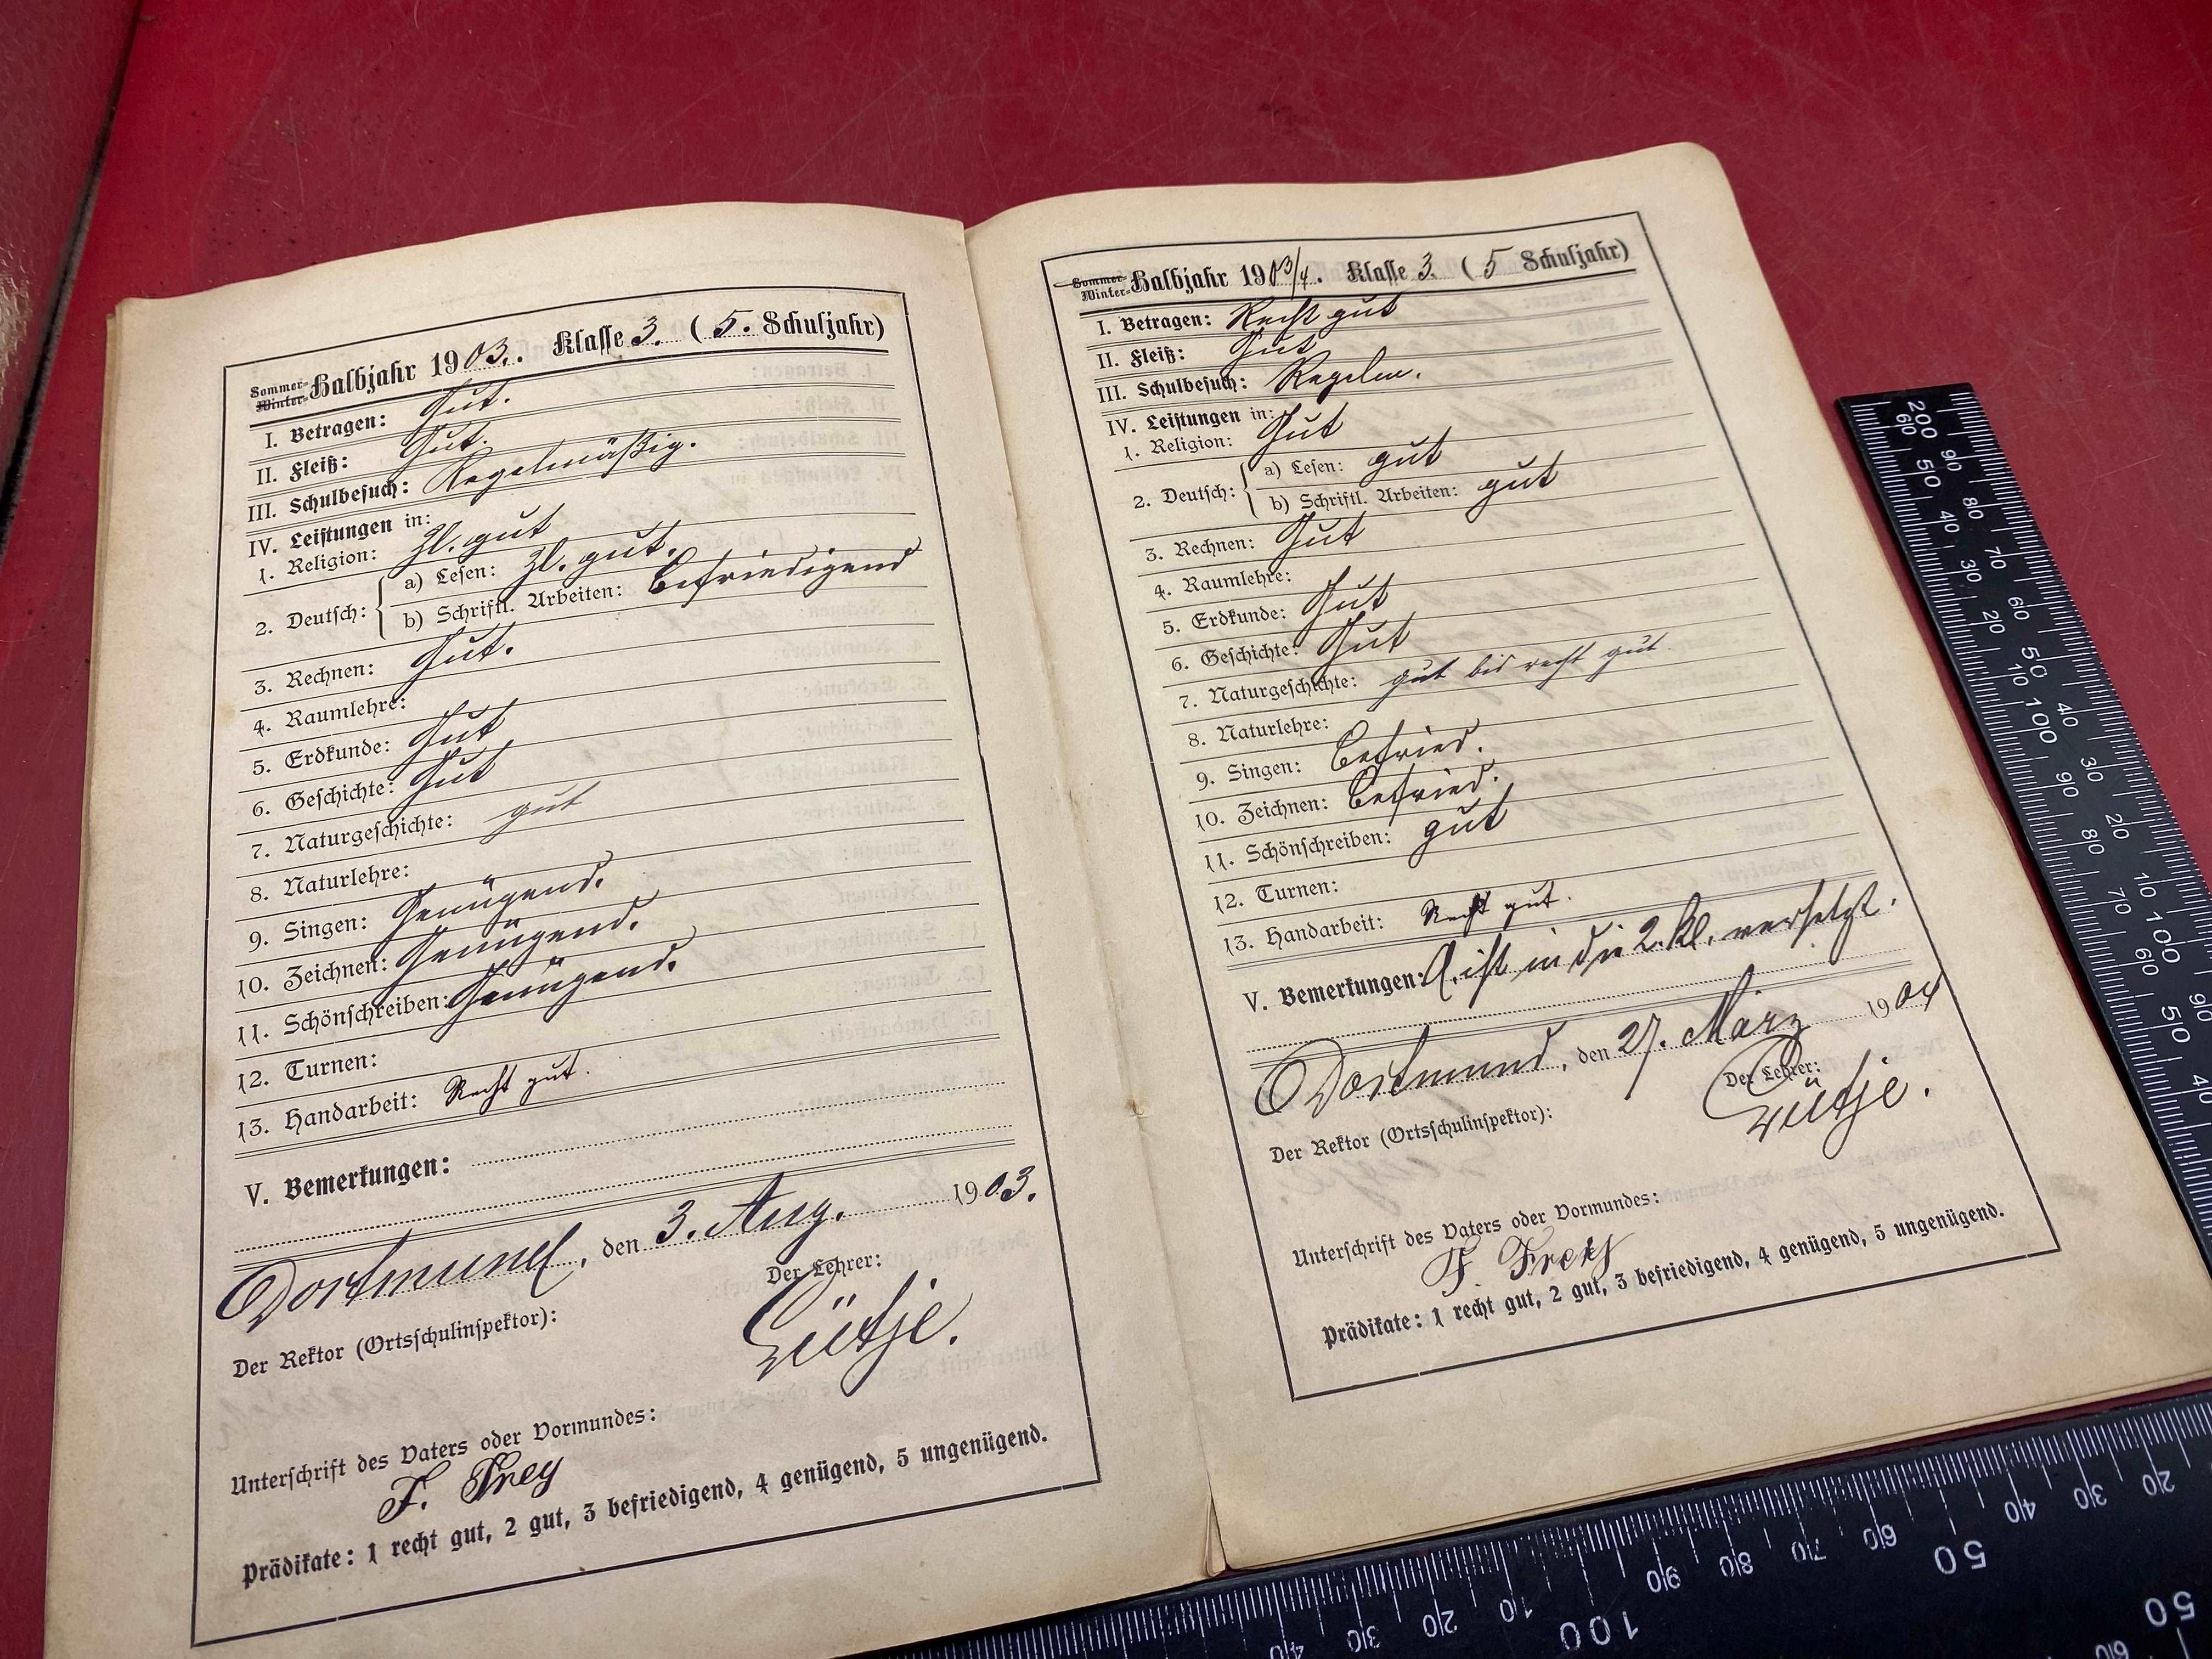 Sommer-
Winter-Halbjahr 1903. Klasse 3. (5. Schuljahr)
I. Betragen: Gut.
II. Fleiß: Gut.
III. Schulbesuch: Regelmäßig.
IV. Leistungen in:
1. Religion: Zl. gut
2. Deutsch: a) Lesen: Zl. gut.
b) Schriftl. Arbeiten: Befriedigend
3. Rechnen: Gut.
4. Raumlehre:
5. Erdkunde: Gut
6. Geschichte: Gut
7. Naturgeschichte: gut
8. Naturlehre:
9. Singen: Genügend.
10. Zeichnen: Genügend.
11. Schönschreiben: Genügend.
12. Turnen:
13. Handarbeit: Recht gut.
V. Bemerkungen:
Dortmund, den 3. Aug. 1903.
Der Lehrer:
Lütje.
Der Rektor (Ortsschulinspektor):
Unterschrift des Vaters oder Vormundes:
F. Frey
Prädikate: 1 recht gut, 2 gut, 3 befriedigend, 4 genügend, 5 ungenügend.
Sommer-
Winter-Halbjahr 1903/4. Klasse 3. (5 Schuljahr)
I. Betragen: Recht gut
II. Fleiß: Gut
III. Schulbesuch: Regelm.
IV. Leistungen in:
1. Religion: Gut
2. Deutsch: a) Lesen: gut
b) Schriftl. Arbeiten: gut
3. Rechnen: Gut
4. Raumlehre:
5. Erdkunde: Gut
6. Geschichte: Gut
7. Naturgeschichte: gut bis recht gut.
8. Naturlehre:
9. Singen: Befried.
10. Zeichnen: Befried.
11. Schönschreiben: gut
12. Turnen:
13. Handarbeit: Recht gut.
V. Bemerkungen: ist in die 2. Kl. versetzt.
Dortmund, den 27. März 1904
Der Lehrer:
Lütje.
Der Rektor (Ortsschulinspektor):
Unterschrift des Vaters oder Vormundes:
F. Frey
Prädikate: 1 recht gut, 2 gut, 3 befriedigend, 4 genügend, 5 ungenügend.
200 90 80 70 60 50 40 30 20 10 100 90 80 70 60 50 40
60 50 40 30 20 10 100 90 80 70 60 50
20 30 40 50 60 70 80 90 100 10 20 30 40
50 60